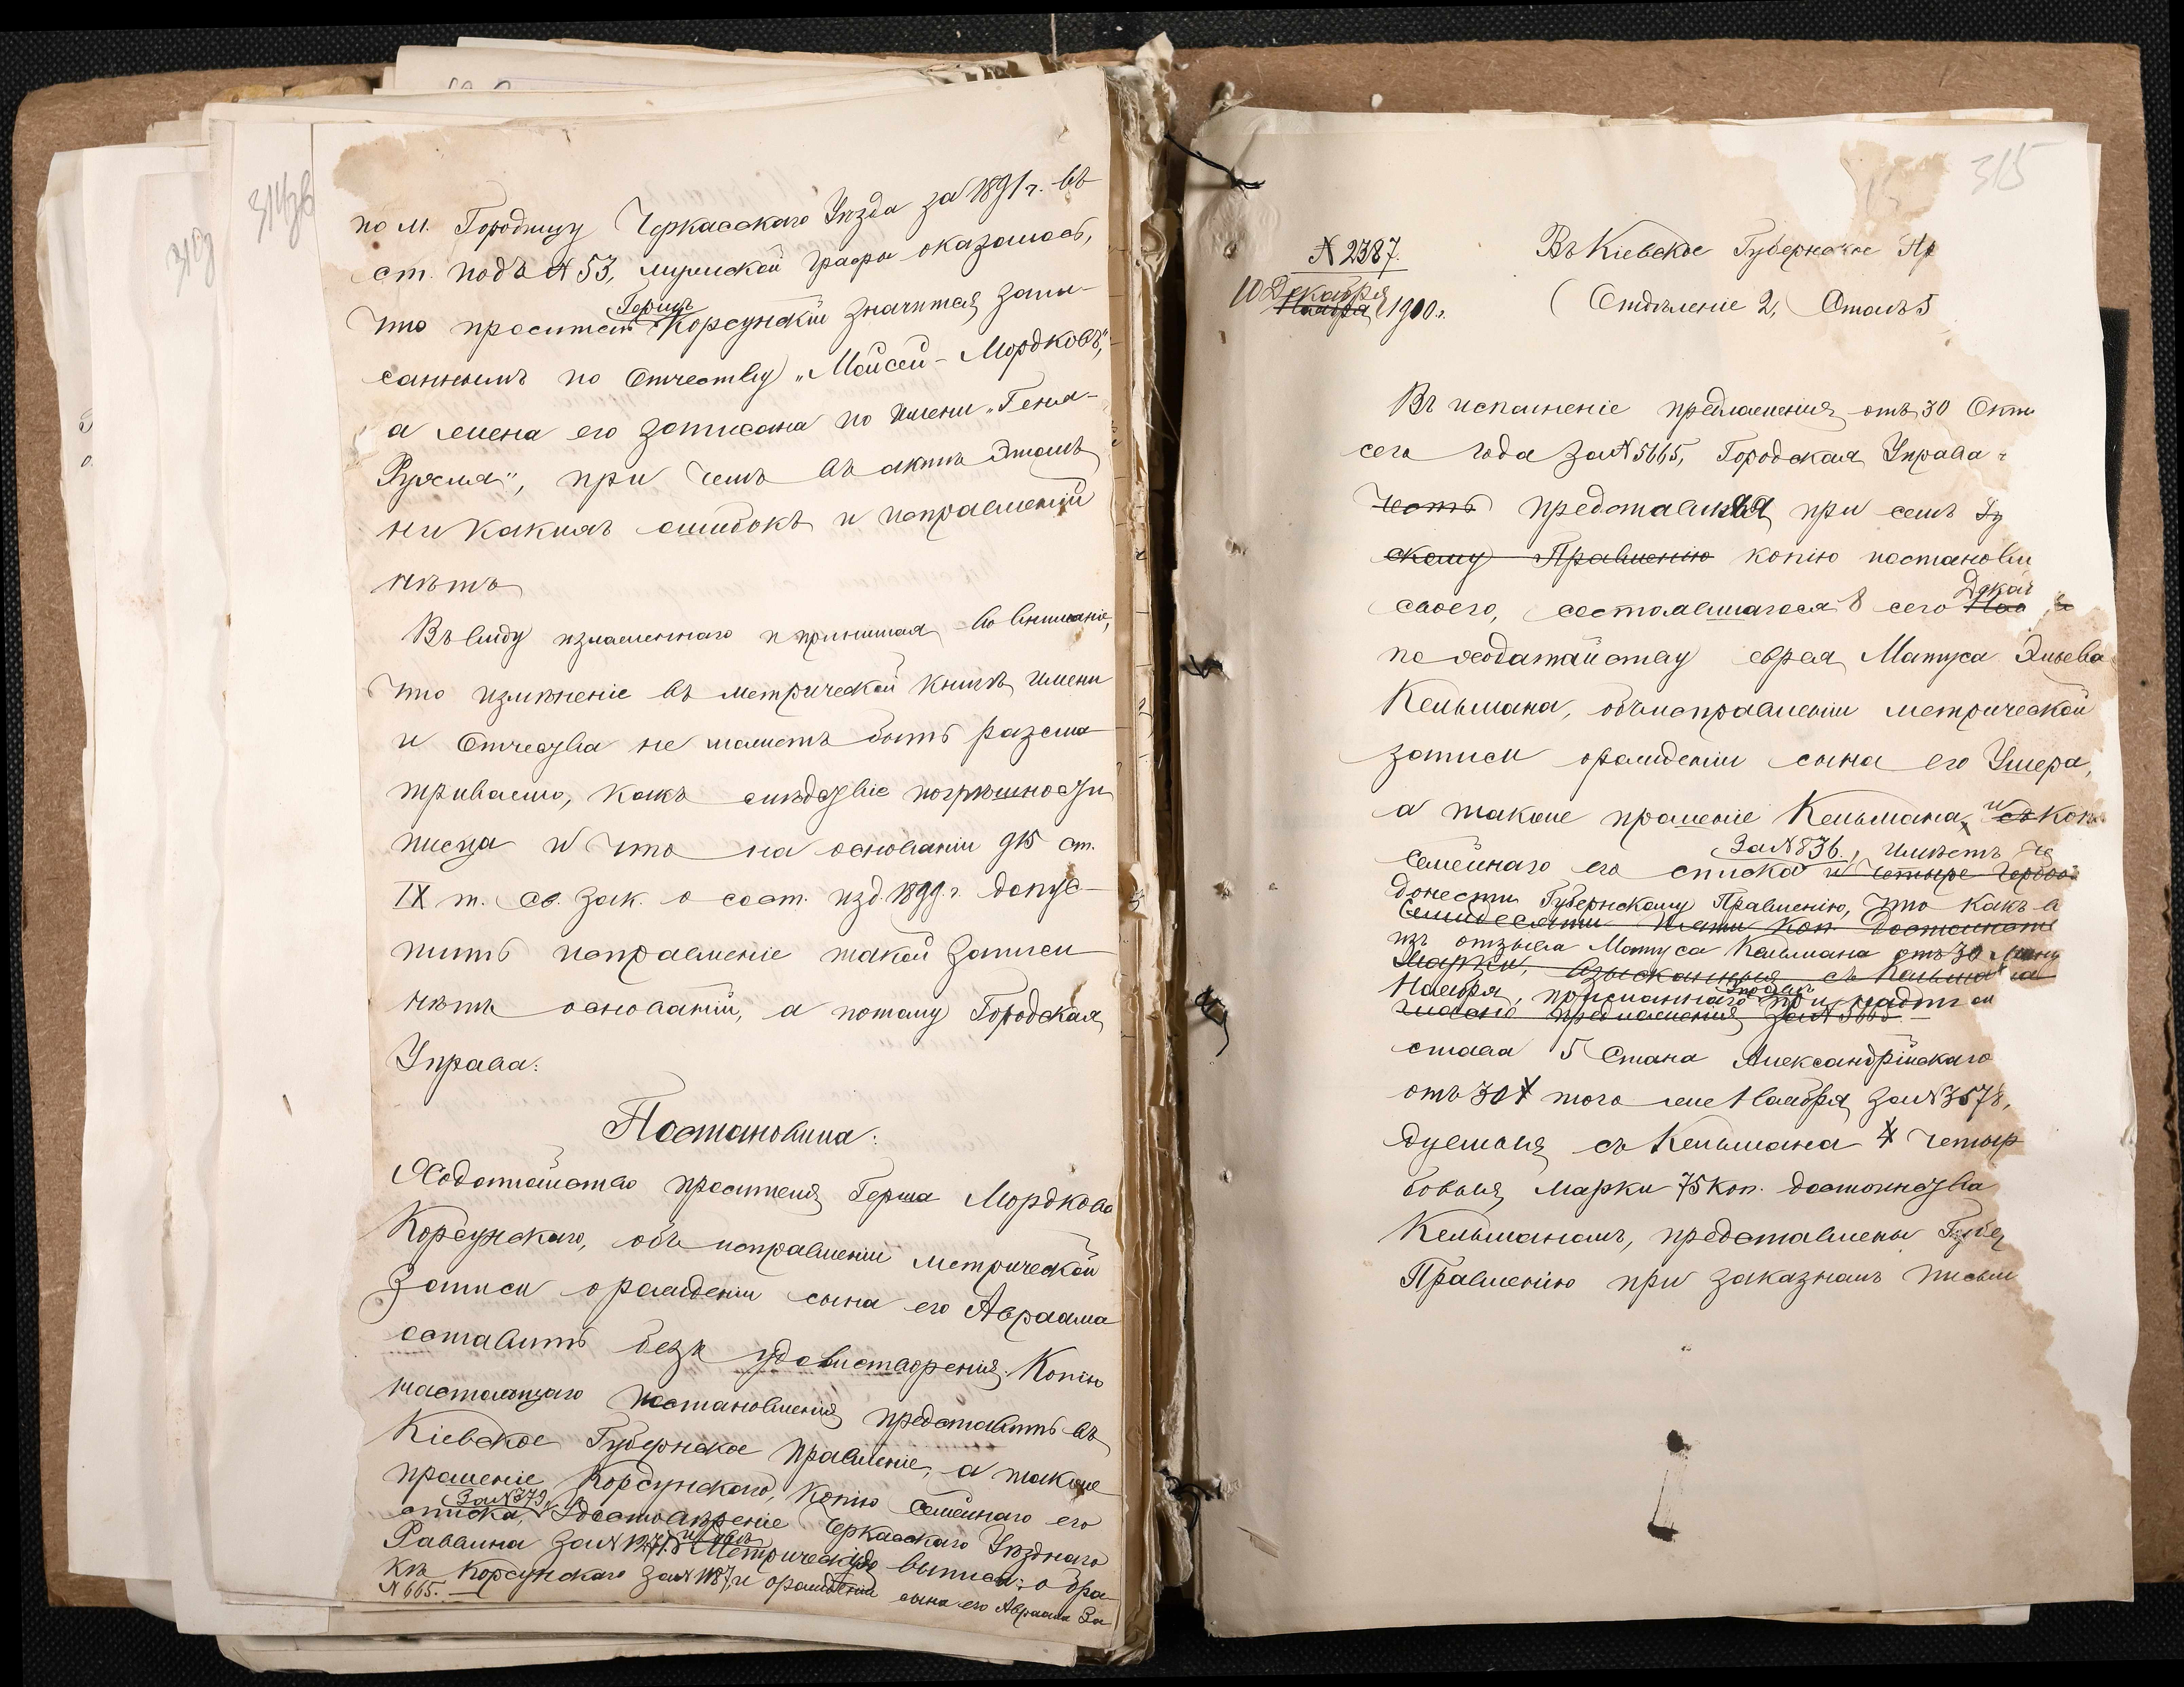 314об
по м. Городищу Черкасскаго Уѣзда за 1891 г. въ
ст. подъ №53, мужской графы оказалось,
Герша
что проситель Корсунскій значится запи-
саннымъ по Отчеству „Мойсей-Мордковъ",
а жена его записана по имени „Геня-
Рухля", при чемъ въ актѣ этомъ
ни какихъ ошибокъ и исправленій
нѣтъ
Въ виду изложеннаго и принимая во вниманіе,
что измѣненіе въ метрической книгѣ имени
и Отчества не можетъ быть разсма
триваемо, какъ слѣдствіе погрѣшности
писца и что на основаніи 915 ст.
IX т. Св. Зак. о сост. изд. 1899 г. допус-
тить исправленіе такой записи
нѣтъ основаній, а потому Городская
Управа:
Постановила:
Ходатайство просителя Герша Мордкова
Корсунскаго, объ исправленіи метрической
записи о рожденіи сына его Авраама
оставить безъ удовлетворенія. Копію
настоящаго постановленія представить въ
Кіевское Губернское Правленіе, а также
прошеніе Корсунскаго, копію семейнаго его
За №379,
списка, удостовѣреніе Черкасскаго Уѣзднаго
Раввина за № метрическія выписи: о бра-
кѣ Корсунскаго за №1187, и о рожденіи сына его Авраама За
№665.
315
№2387.
10 Декабря
Ноября 1900 г.
Въ Кіевское Губернское Пр
(Отдѣленіе 2, Столъ 5
Въ исполненіе предложенія отъ 30 Октя
сего года за №5665, Городская Управа
честь представляя при семъ Гу
скому Правленію копію постановле
Декаб
своего, состоявшагося 8 сего Ноя
по ходатайству еврея Матуса Эльева
Кельмана, объ исправленіи метрической
записи о рожденіи сына его Ушера,
а также прошеніе Кельмана, и съ коп
За №836, имѣетъ че
семейнаго его списка и четыре гербов
донести Губернскому Правленію, что какъ в
семидесяти пяти коп. достоинств
изъ отзыва Матуса Кельмана отъ 30
марки, взысканныя съ Кельмана
Ноября, присланнаго при надпи
предложенія за №5665.
става 5 Стана Александрійскаго
отъ 30 того же Ноября за №3578,
дуемыя съ Кельмана 4 четыр
бовыя марки 75 коп. достоинства
Кельманомъ, представлены Губер
Правленію при заказномъ письм